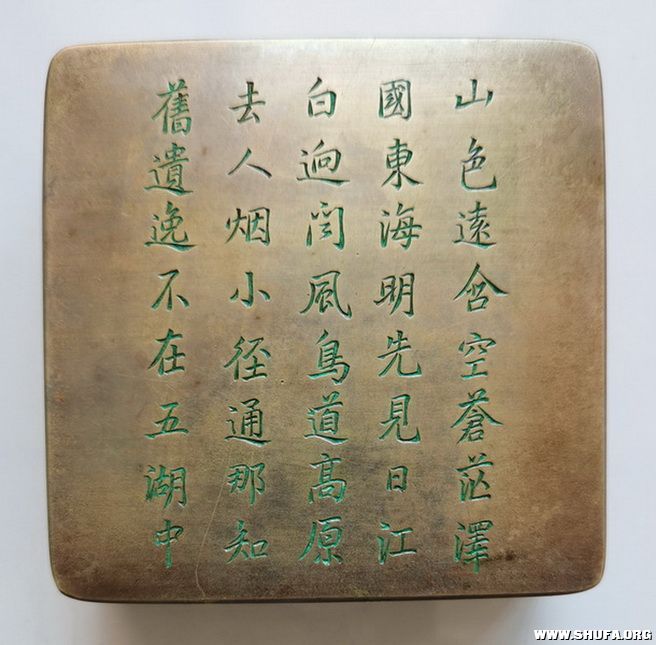 山色遠含空蒼茫澤
國東海明先見日江
白逈聞風鳥道高原
去人烟小徑通那知
舊遺逸不在五湖中
WWW.SHUFA.ORG